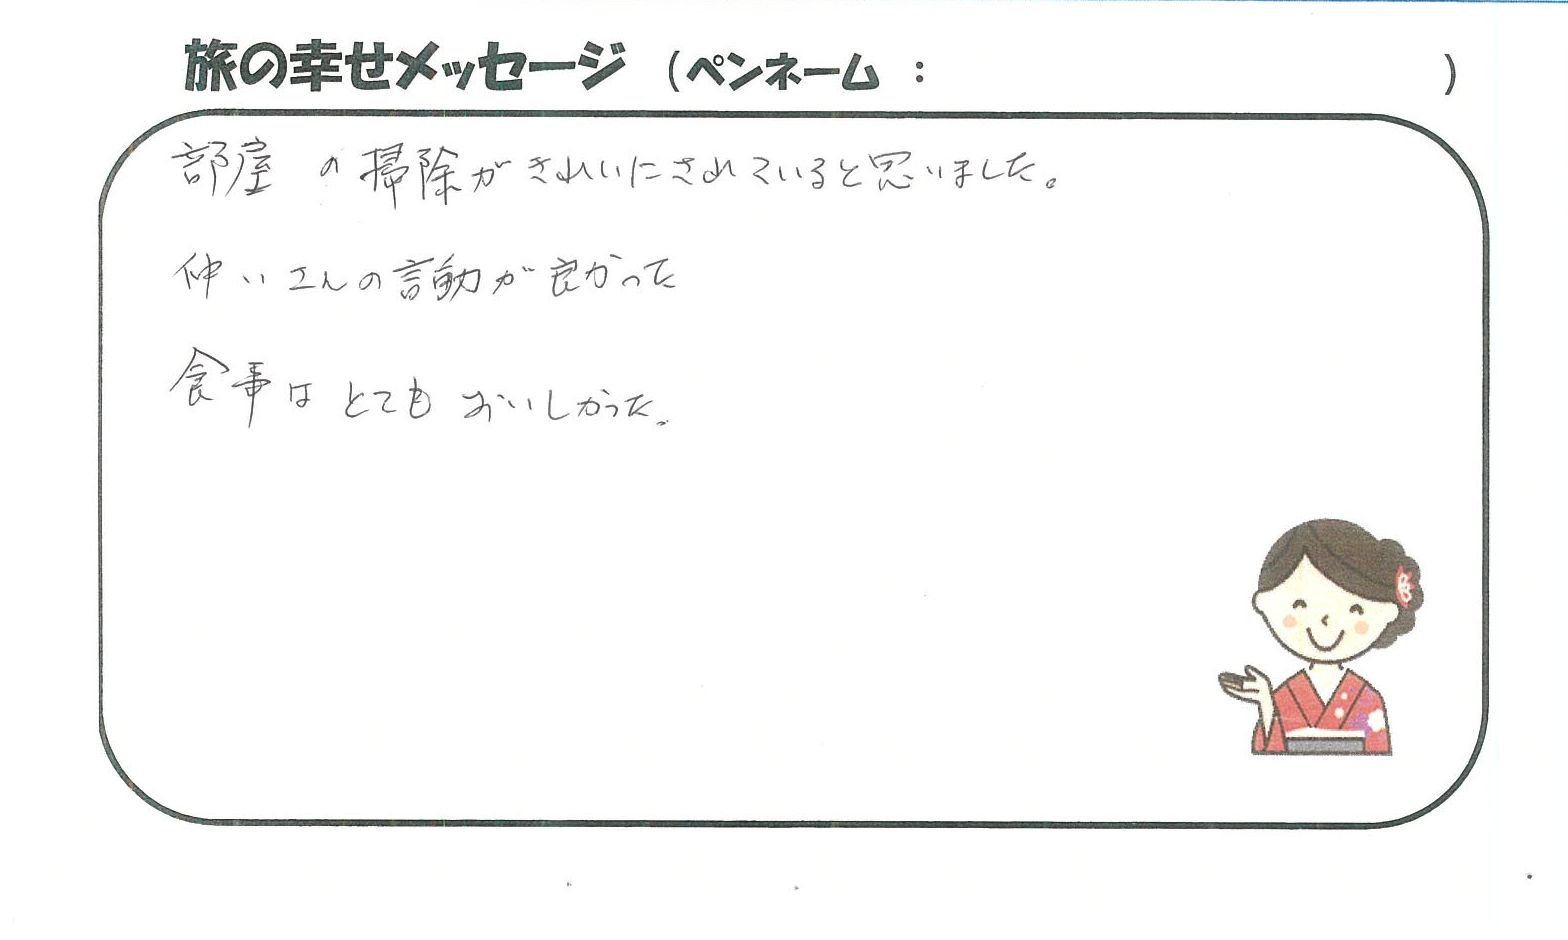 旅の幸せメッセージ （ペンネーム ： ）
部屋の掃除がきれいにされていると思いました。
仲いさんの言動が良かった
食事はとてもおいしかった。